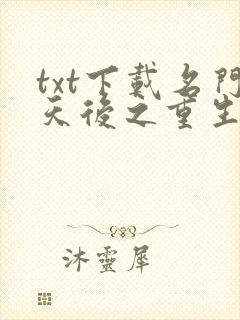 txt下載名門
天後之重生
沐靈犀